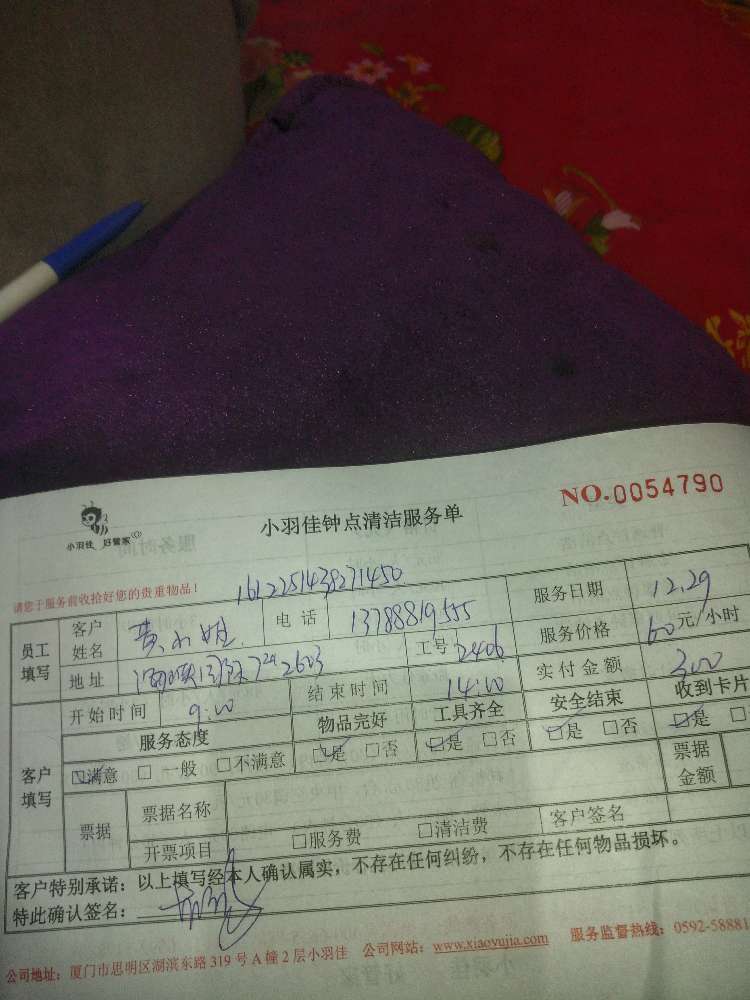 NO.0054790
小羽佳钟点清洁服务单
小羽佳 好管家
请您于服务前收拾好您的贵重物品！
1612251438271450
员工填写 客户姓名 黄小姐 电话 13788819555 服务日期 12.29
地址 2603 工号 2406 服务价格 60元/小时
开始时间 9:00 结束时间 14:00 实付金额 300
客户填写 服务态度 物品完好 工具齐全 安全结束 收到卡片
满意 □一般 □不满意 是 □否 是 □否 是 □否 是 □
票据 票据名称 票据金额
开票项目 □服务费 □清洁费 客户签名
客户特别承诺：以上填写经本人确认属实，不存在任何纠纷，不存在任何物品损坏。
特此确认签名：
公司地址：厦门市思明区湖滨东路319号A幢2层小羽佳 公司网站：www.xiaoyujia.com 服务监督热线：0592-58881